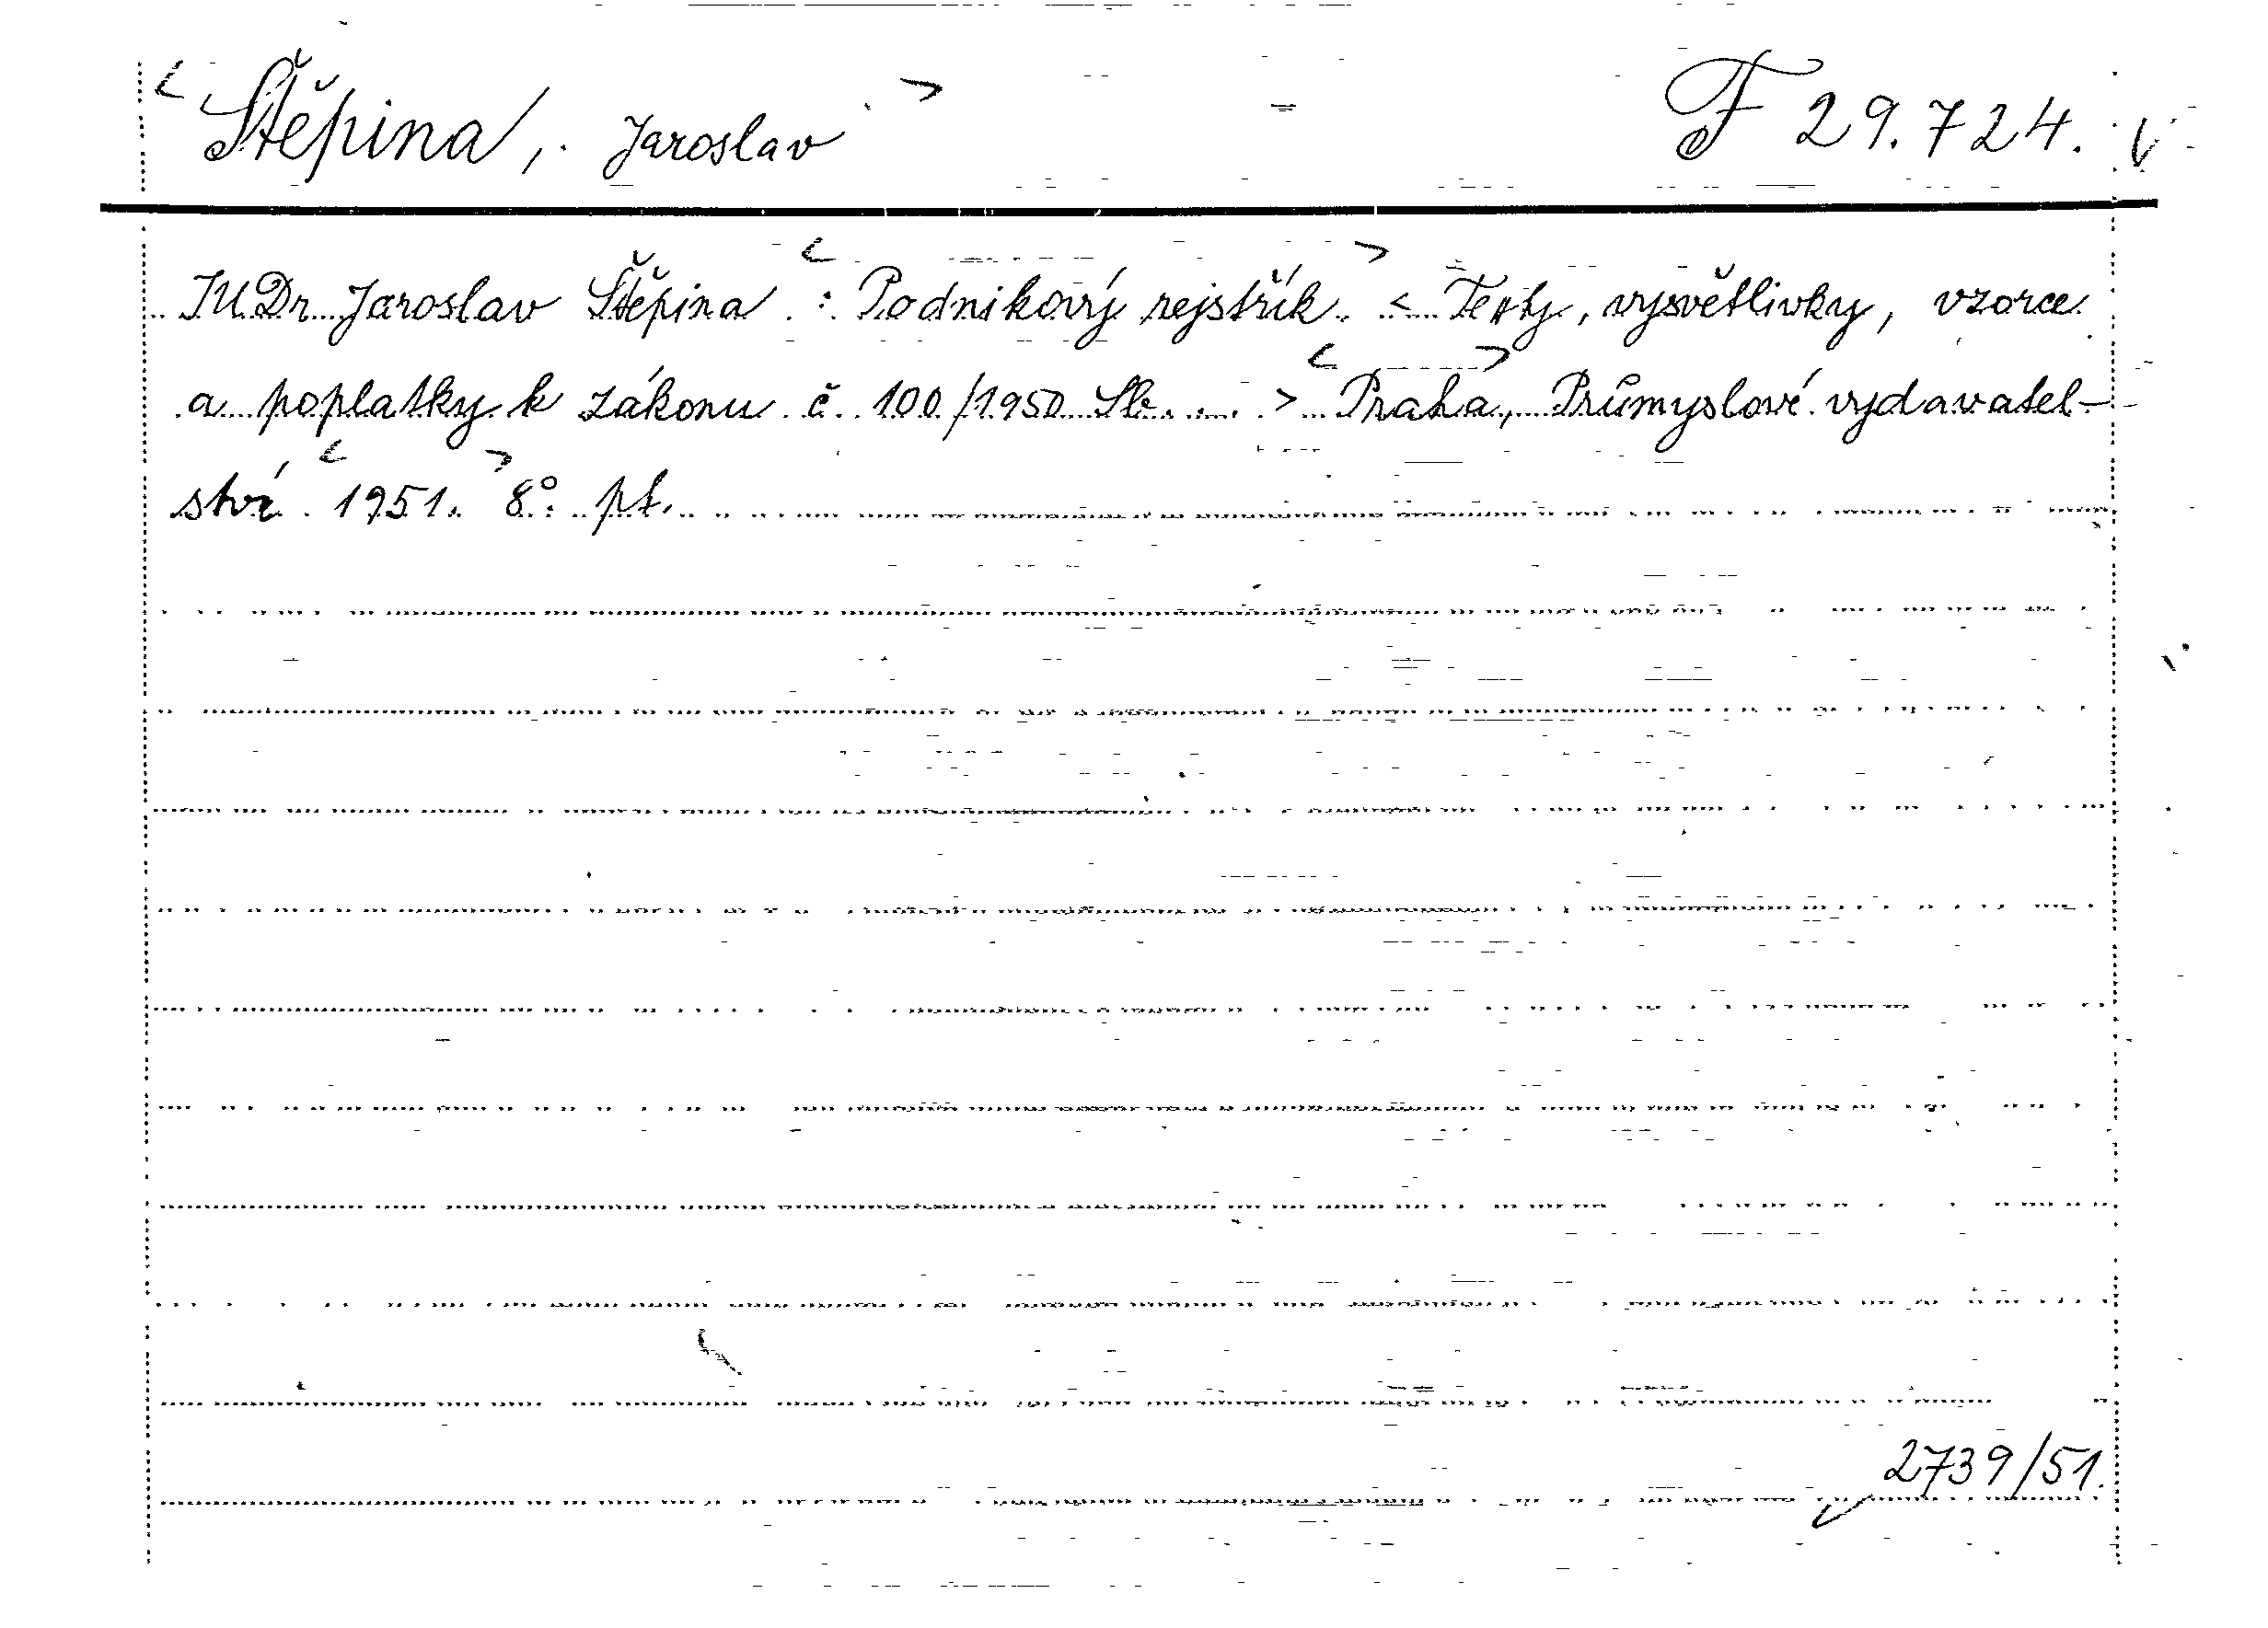 Štěpina, Jaroslav F 29.724.
JUDr Jaroslav Štěpina : Podnikový rejstřík. < Texty, vysvětlivky, vzorce
a poplatky k zákonu č. 100/1950 Sb. ... > Praha, Průmyslové vydavatel-
ství 1951. 8°. pt.
2739/51.